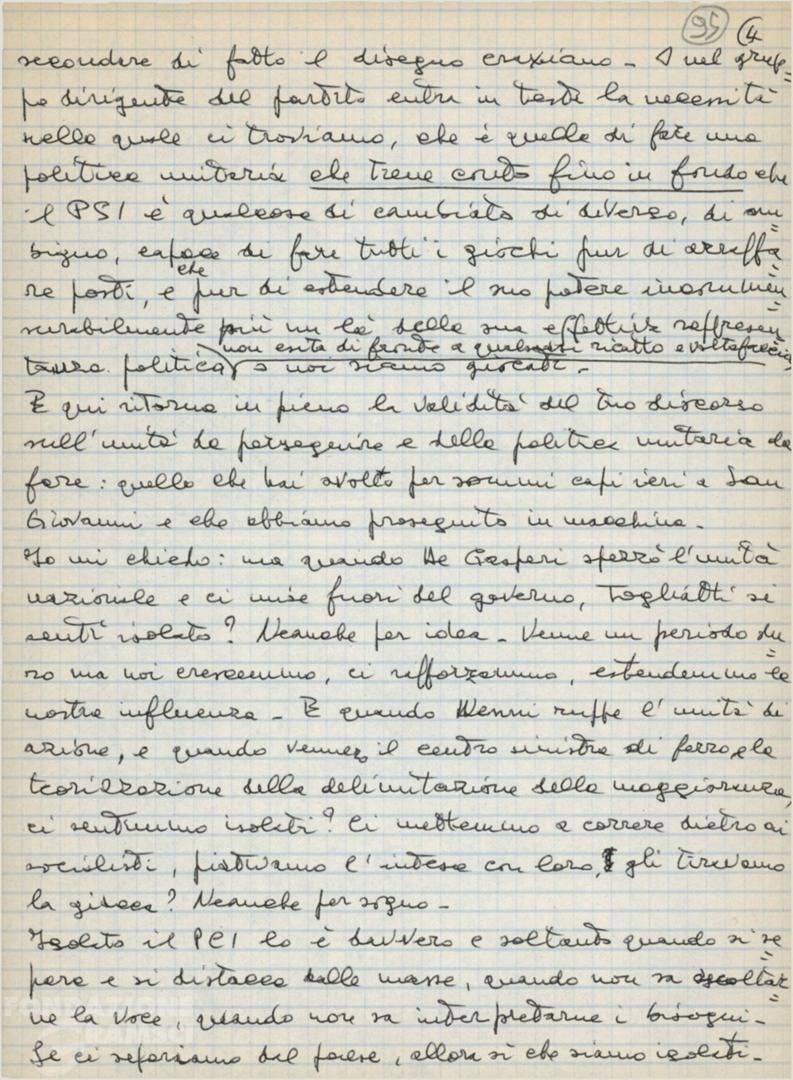 95 (4
secondare di fatto il disegno craxiano - O nel grup=
po dirigente del partito entra in testa la necessità
nella quale ci troviamo, che è quella di fare una
politica unitaria che tiene conto fino in fondo che
il PSI è qualcosa di cambiato di diverso, di am=
biguo, capace di fare tutti i giochi pur di arraffa=
re posti, e che pur di estendere il suo potere incommen=
surabilmente più in là della sua effettiva rappresen=
tanza politica non esita di fronte a qualsiasi ricatto e voltafaccia, o noi siamo giocati.
E qui ritorna in pieno la validità del tuo discorso
sull'unità da perseguire e della politica unitaria da
fare: quello che hai svolto per sommi capi ieri a San
Giovanni e che abbiamo proseguito in macchina -
Io mi chiedo: ma quando De Gasperi spezzò l'unità
nazionale e ci mise fuori del governo, Togliatti si
sentì isolato? Neanche per idea - Venne un periodo du=
ro ma noi crescemmo, ci rafforzammo, estendemmo la
nostra influenza - E quando Nenni ruppe l'unità di
azione, e quando venne il centro sinistra di ferro, e la
teorizzazione della delimitazione della maggioranza,
ci sentimmo isolati? Ci mettemmo a correre dietro ai
socialisti, piativamo l'intesa con loro, gli tiravamo
la giacca? Neanche per sogno -
Isolato il PCI lo è davvero e soltanto quando si se=
para e si distacca dalle masse, quando non sa ascoltar=
ne la voce, quando non sa interpretarne i bisogni -
Se ci separiamo dal paese, allora sì che siamo isolati -
FONDAZIONE